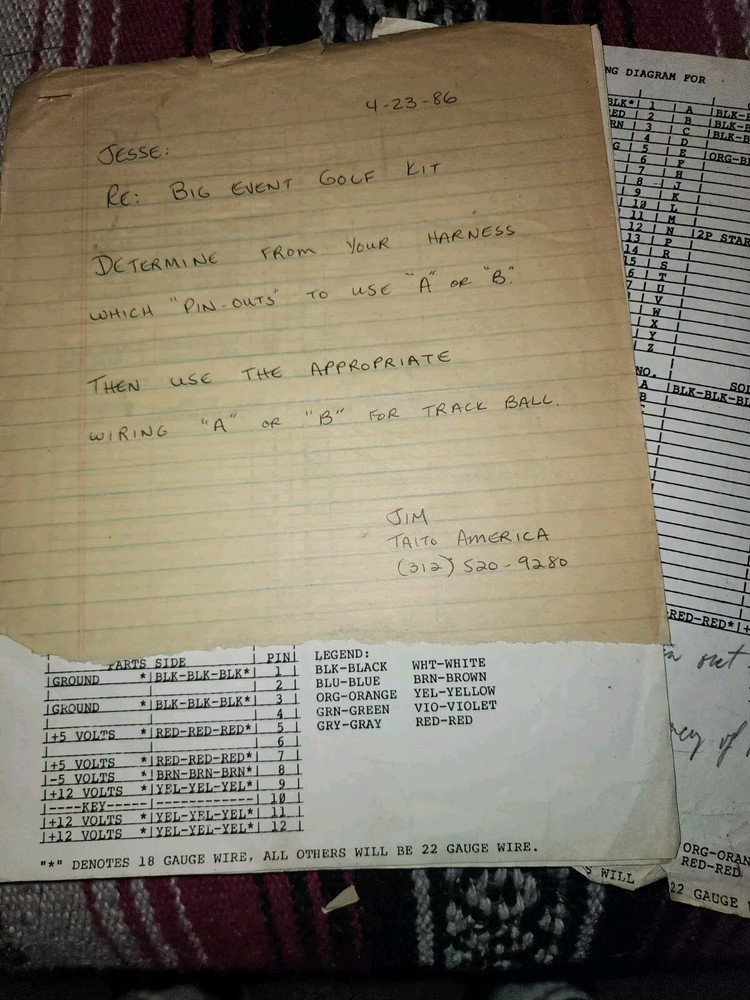 4-23-86
JESSE:
RE: BIG EVENT GOLF KIT
DETERMINE FROM YOUR HARNESS
WHICH "PIN-OUTS" TO USE "A" OR "B".
THEN USE THE APPROPRIATE
WIRING "A" OR "B" FOR TRACK BALL.
JIM
TAITO AMERICA
(312) 520-9280
PARTS SIDE |PIN|
|GROUND *|BLK-BLK-BLK*| 1 |
| 2 |
|GROUND *|BLK-BLK-BLK*| 3 |
| 4 |
|+5 VOLTS *|RED-RED-RED*| 5 |
| 6 |
|+5 VOLTS *|RED-RED-RED*| 7 |
|-5 VOLTS *|BRN-BRN-BRN*| 8 |
|+12 VOLTS *|YEL-YEL-YEL*| 9 |
|----KEY-----|------------| 10 |
|+12 VOLTS *|YEL-YEL-YEL*| 11 |
|+12 VOLTS *|YEL-YEL-YEL*| 12 |
LEGEND:
BLK-BLACK WHT-WHITE
BLU-BLUE BRN-BROWN
ORG-ORANGE YEL-YELLOW
GRN-GREEN VIO-VIOLET
GRY-GRAY RED-RED
"*" DENOTES 18 GAUGE WIRE, ALL OTHERS WILL BE 22 GAUGE WIRE.
NG DIAGRAM FOR
BLK*| 1 | A |BLK-B
ED | 2 | B |BLK-B
RN | 3 | C |BLK-B
| 4 | D |
G | 5 | E |ORG-BL
| 6 | F |
| 7 | H |
| 8 | J |
| 9 | K |
| 10 | L |
| 11 | M |
| 12 | N | 2P STAR
| 13 | P |
14 | R |
15 | S |
6 | T |
7 | U |
| V |
| W |
| X |
| Y |
| Z |
NO. | SOL
A |BLK-BLK-BL
B
RED-RED*|+
out
of
ORG-ORAN
RED-RED
S WILL
22 GAUGE